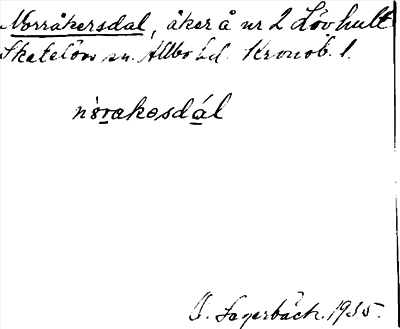 Norråkersdal, åker å nr 2 Lövhult
Skatelöv sn. Allbo hd. Kronob. l.
nòrakosdál
O. Fagerbäck. 1935.